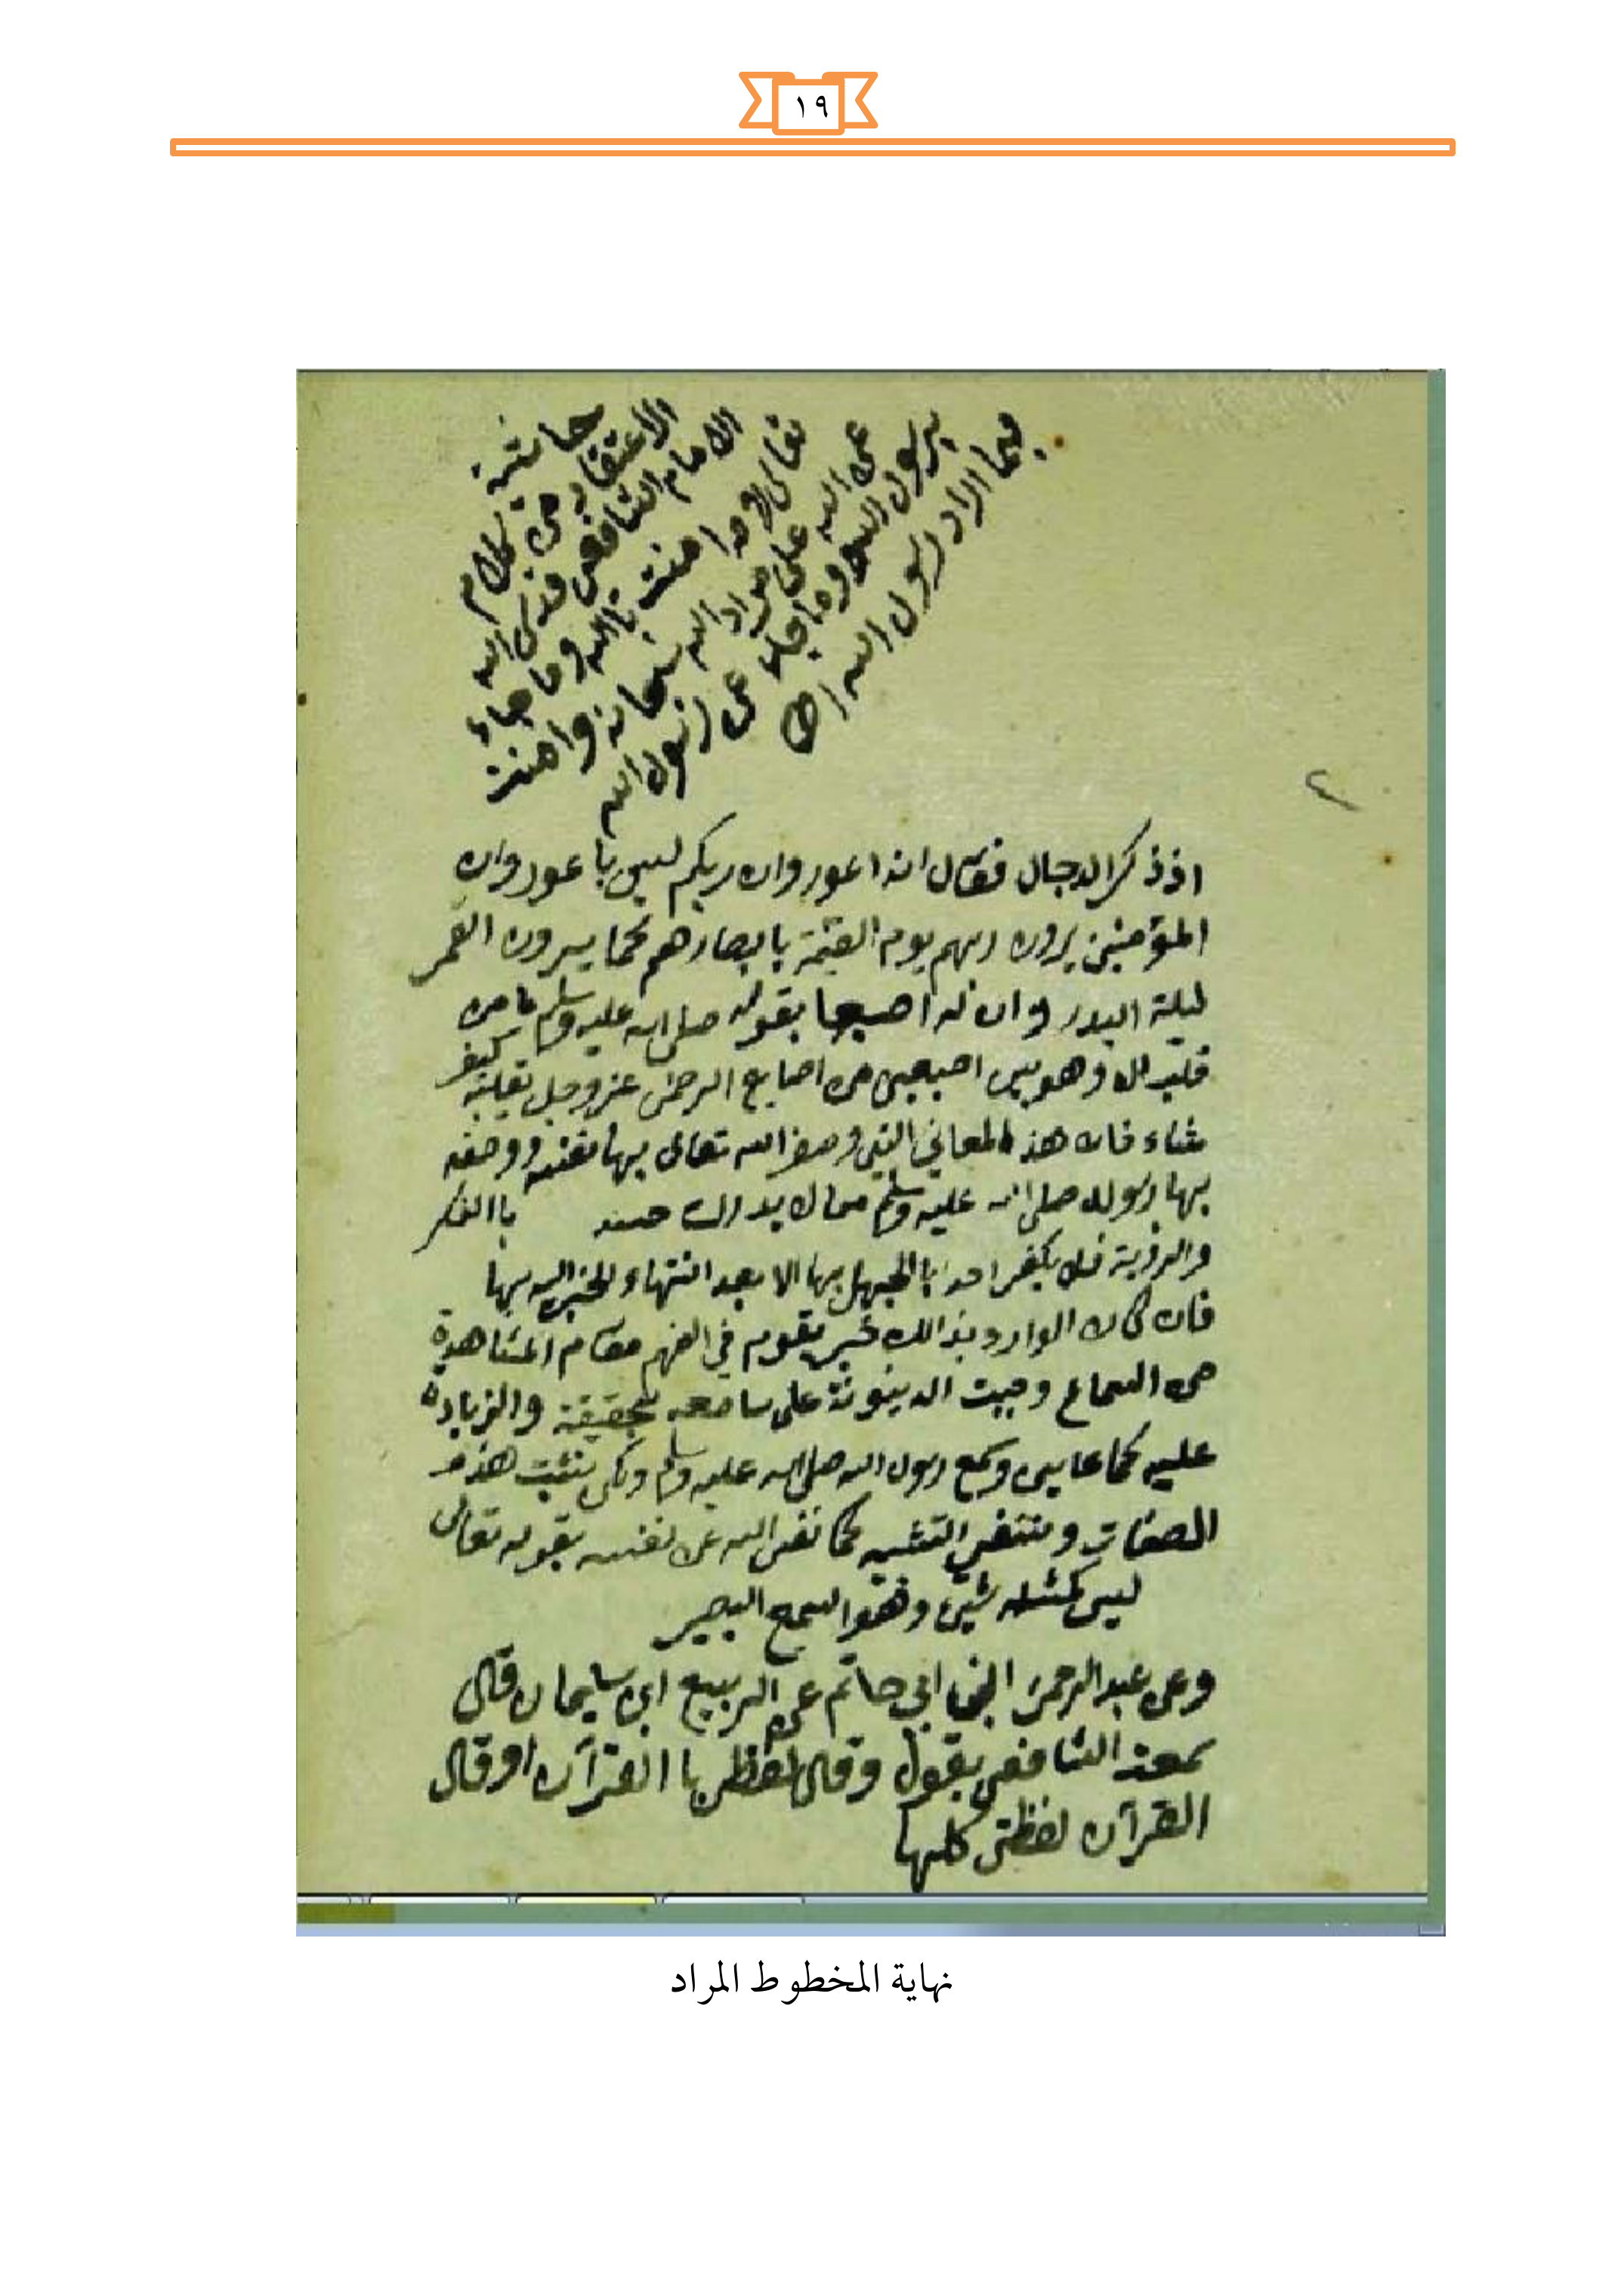 ١٩
حاشية
الاعتقاد من كلام
الامام الشافعي قدس الله
تعالى لا مه امنت بالله وما جاء
عن الله على مراد الله سبحانه وامنت
برسول الله وما جاء عن رسول الله
بما اراد رسول الله اه
٢
اذ ذكر الدجال فقال انه اعور وان ربكم ليس باعور وان
المؤمنين يرون ربهم يوم القيمة بابصارهم كما يرون القمر
ليلة البدر وان له اصبعا بقوله صلى الله عليه وسلم ما من
قلب الا وهو بين اصبعين من اصابع الرحمن عز وجل يقلبه كيف
شاء فان هذه المعاني التي وصف الله تعالى بها نفسه ووصفه
بها رسوله صلى الله عليه وسلم مما لا يدرك باالفكر
والرؤية فلا يكفر احد باالجهل بها الا بعد انتهاء الخبر اليه بها
فان كان الوارد بذالك خبر يقوم في الفهم مقام المشاهدة
من السماع وجبت الدينونة على سامعه بحقيقة والزيادة
عليه كما عاين وسمع رسول الله صلى الله عليه وسلم ولكن نثبت هذه
الصفات وننفي التشبيه كما نفى الله عن نفسه بقوله تعالى
ليس كمثله شيئ وهو السمع البصير
وعن عبد الرحمن ابن ابي حاتم عن الربيع ابن سليمان قال
سمعت الشافعي يقول وقال لفظي باالقرآن او قال
القرآن لفظي كلها
نهاية المخطوط المراد